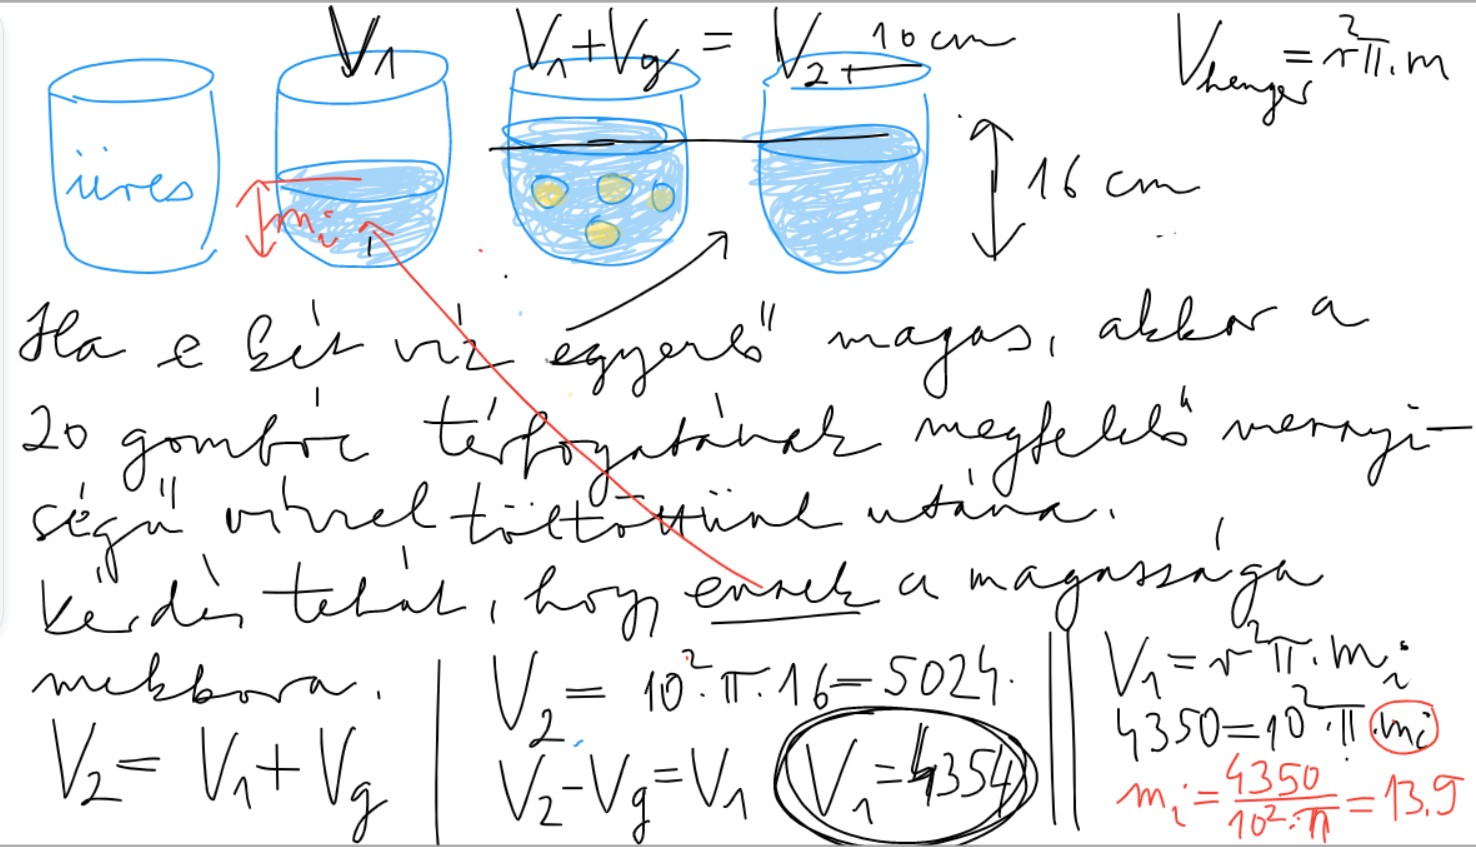 V₁
V₁+Vg = V₂
10 cm
Vhenger = r²π.m
üres
mi
16 cm
Ha e két víz egyenlő magas, akkor a
20 gombóc térfogatának megfelelő mennyi-
ségű vízzel töltöttünk utána.
Kérdés tehát, hogy ennek a magassága
mekkora.
V₂ = V₁+Vg
V₂ = 10².π.16=5024.
V₂-Vg=V₁
V₁=4354
V₁=r²π.mi
4350=10².π.mi
mi = 4350/10².π = 13,9